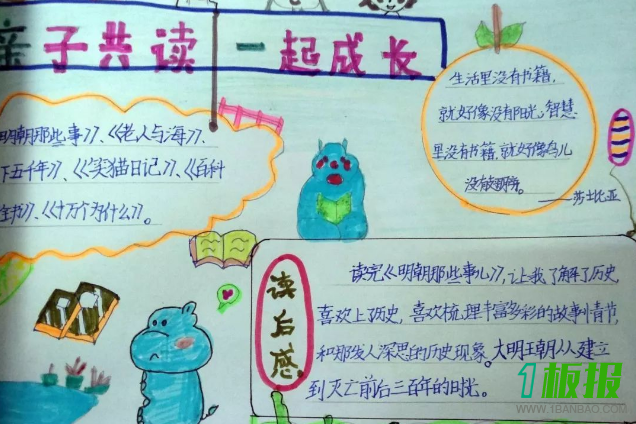 亲子共读一起成长
明朝那些事》、《老人与海》、
下五千年》、《笑猫日记》、《百科
全书》、《十万个为什么》。
生活里没有书籍,
就好像没有阳光;智慧
里没有书籍,就好像鸟儿
没有翅膀。
——莎士比亚
读后感
读完《明朝那些事儿》,让我了解了历史,
喜欢上了历史,喜欢梳理丰富多彩的故事情节,
和那发人深思的历史现象。大明王朝从建立
到灭亡前后三百年的时光。
1板报
WWW.1BANBAO.COM